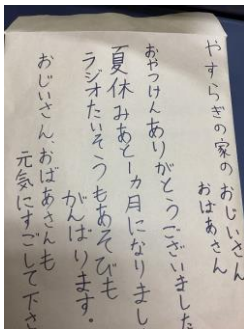 やすらぎの家のおじいさん
おばあさん
おやつけんありがとうございました
夏休みあと1ヵ月になりまし
ラジオたいそうもあそびも
がんばります。
おじいさん、おばあさんも
元気にすごして下さ